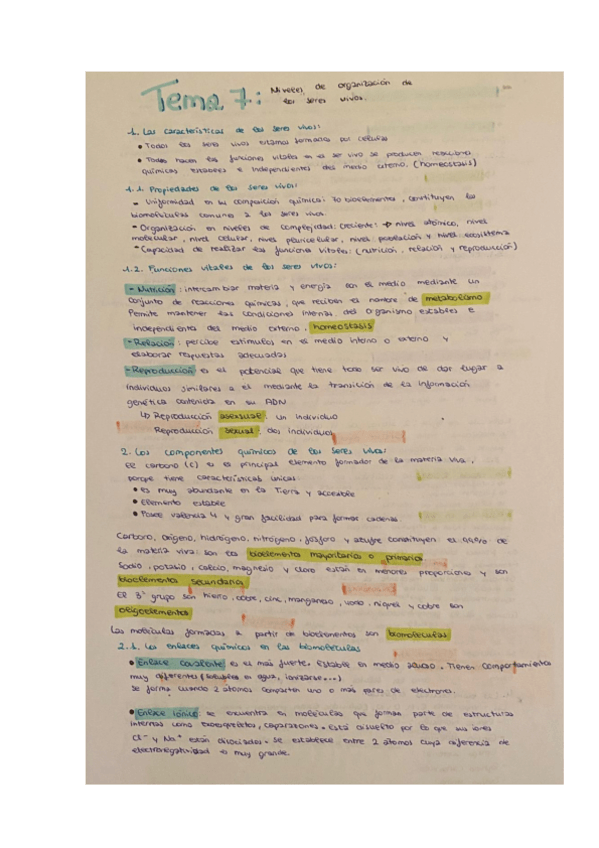 Tema 7: Niveles de organización de
los seres vivos.
1. Las características de los seres vivos:
• Todos los seres vivos estamos formados por células
• Todos hacen las funciones vitales en el ser vivo se producen reacciones
químicas estables e independientes del medio externo. (homeostasis)
1.1. Propiedades de los seres vivos:
- Uniformidad en su composición química: 70 bioelementos, constituyen las
biomoléculas comunes a los seres vivos.
- Organización en niveles de complejidad creciente: → nivel atómico, nivel
molecular, nivel celular, nivel pluricelular, nivel población y nivel ecosistema
- Capacidad de realizar las funciones vitales: (nutrición, relación y reproducción)
1.2. Funciones vitales de los seres vivos:
- Nutrición: intercambiar materia y energía con el medio mediante un
conjunto de reacciones químicas, que reciben el nombre de metabolismo
Permite mantener las condiciones internas del organismo estables e
independiente del medio externo, homeostasis
- Relación: percibe estímulos en el medio interno o externo y
elaborar respuestas adecuadas
- Reproducción es el potencial que tiene todo ser vivo de dar lugar a
individuos similares a él mediante la transición de la información
genética contenida en su ADN
↳ Reproducción asexual: un individuo
Reproducción sexual: dos individuos
2. Los componentes químicos de los seres vivos:
El carbono (C) es el principal elemento formador de la materia viva,
porque tiene características únicas:
• Es muy abundante en la Tierra y accesible
• Elemento estable
• Posee valencia 4 y gran facilidad para formar cadenas.
Carbono, oxígeno, hidrógeno, nitrógeno, fósforo y azufre constituyen el 99% de
la materia viva. son los bioelementos mayoritarios o primarios
Sodio, potasio, calcio, magnesio y cloro están en menores proporciones y son
bioelementos secundarios
El 3º grupo son hierro, cobre, cinc, manganeso, yodo, níquel y cobre son
oligoelementos
Las moléculas formadas a partir de bioelementos son biomoléculas
2.1. Los enlaces químicos en las biomoléculas
• Enlace covalente es el más fuerte. Estable en medio acuoso. Tienen comportamientos
muy diferentes (solubles en agua, ionizarse...)
se forma cuando 2 átomos comparten uno o más pares de electrones.
• Enlace iónico: se encuentra en moléculas que forman parte de estructuras
internas como exoesqueletos, caparazones. Está disuelto por lo que sus iones
Cl⁻ y Na⁺ están disociados. Se establece entre 2 átomos cuya diferencia de
electronegatividad es muy grande.